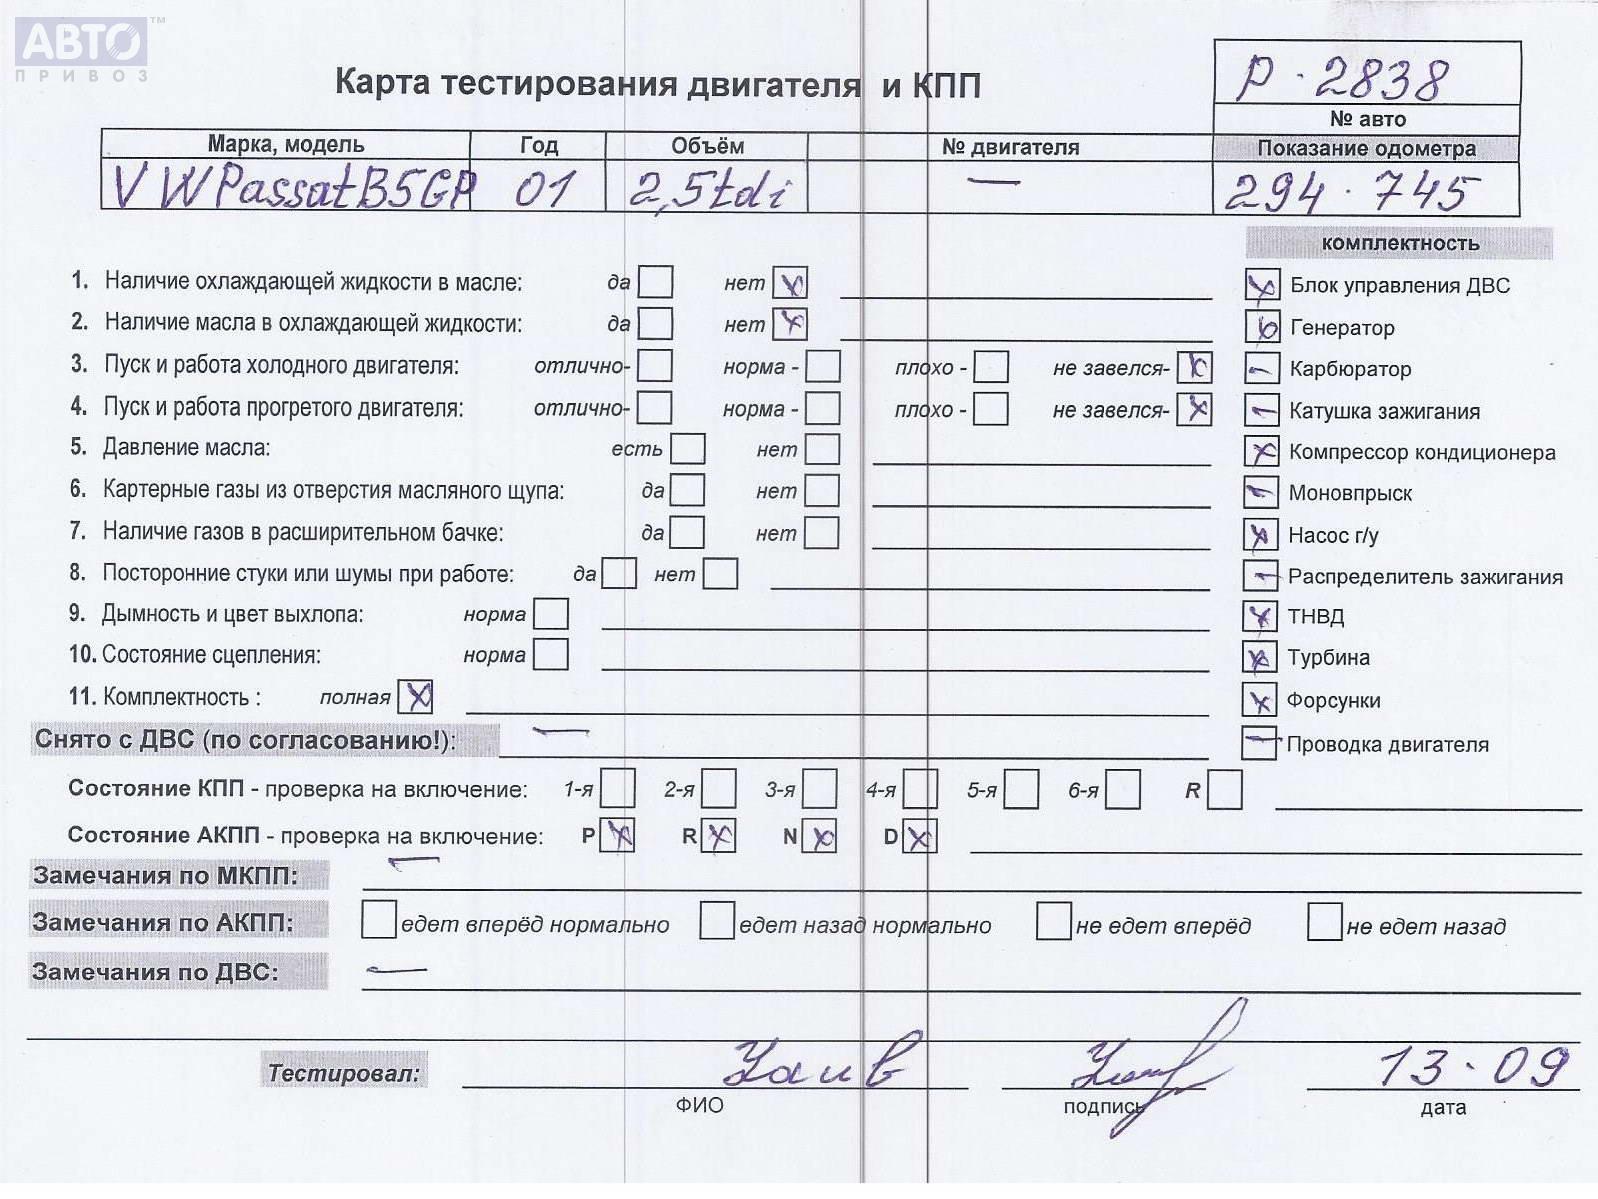 АВТО™
ПРИВОЗ
Карта тестирования двигателя и КПП
P-2838
№ авто
Марка, модель Год Объём № двигателя Показание одометра
VW Passat B5GP 01 2,5tdi — 294.745
комплектность
1. Наличие охлаждающей жидкости в масле: да нет x
Блок управления ДВС
2. Наличие масла в охлаждающей жидкости: да нет x
Генератор
3. Пуск и работа холодного двигателя: отлично- норма - плохо - не завелся-
Карбюратор
4. Пуск и работа прогретого двигателя: отлично- норма - плохо - не завелся- x
Катушка зажигания
5. Давление масла: есть нет
Компрессор кондиционера
6. Картерные газы из отверстия масляного щупа: да нет
Моновпрыск
7. Наличие газов в расширительном бачке: да нет
Насос г/у
8. Посторонние стуки или шумы при работе: да нет
Распределитель зажигания
9. Дымность и цвет выхлопа: норма
ТНВД
10. Состояние сцепления: норма
Турбина
11. Комплектность : полная x
Форсунки
Снято с ДВС (по согласованию!): —
Проводка двигателя
Состояние КПП - проверка на включение: 1-я 2-я 3-я 4-я 5-я 6-я R
Состояние АКПП - проверка на включение: P x R x N x D x
Замечания по МКПП: —
Замечания по АКПП: едет вперёд нормально едет назад нормально не едет вперёд не едет назад
Замечания по ДВС: —
Тестировал: 13.09
ФИО подпись дата